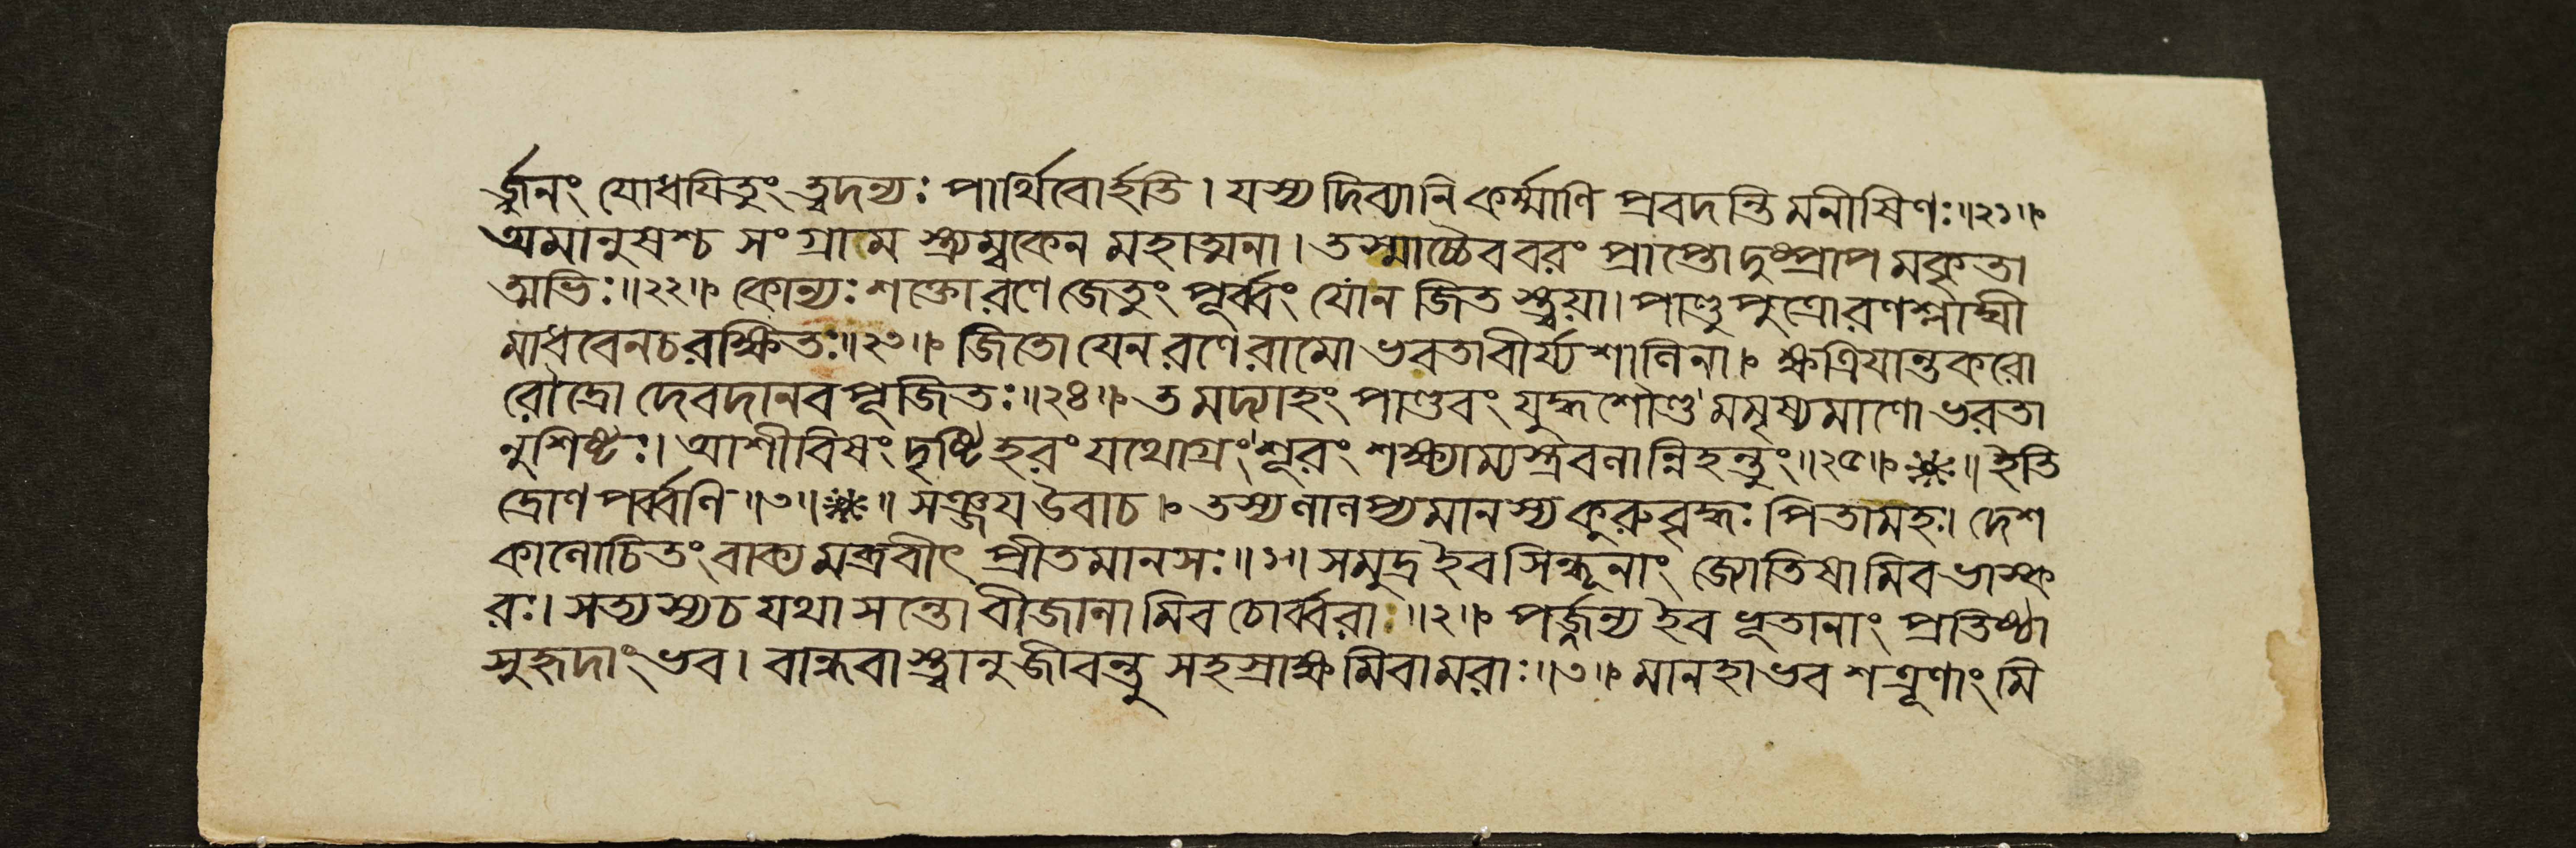 র্জ্জুনং যোধযিতুং ত্বদন্যঃ পার্থিবোর্হতি। যস্য দিব্যানি কর্ম্মাণি প্রবদন্তি মনীষিণঃ॥২১॥
অমানুষশ্চ সংগ্রাম স্ত্র্যম্বকেন মহাত্মনা। তস্মাচ্চৈব বরং প্রাপ্তো দুষ্প্রাপ মকৃতা
ত্মভিঃ॥২২॥ কোন্যঃ শক্তো রণে জেতুং পূর্ব্বং যোন জিত স্ত্বয়া। পাণ্ডু পুত্রো রণশ্লাঘী
মাধবেনচ রক্ষিতঃ॥২৩॥ জিতো যেন রণে রামো ভবতা বীর্য্য শালিনা। ক্ষত্রিযান্তকরো
রৌদ্রো দেবদানব পূজিতঃ॥২৪॥ তমদ্যাহং পাণ্ডবং যুদ্ধশৌণ্ড মমৃষ্যমাণো ভবতা
নুশিষ্টঃ। আশীবিষং দৃষ্টিহরং যথোগ্রং শূরং শক্ষ্যাম্যস্ত্রবলান্নিহন্তুং॥২৫॥ ॥ ইতি
দ্রোণ পর্ব্বণি ॥৩॥ ॥ সঞ্জয উবাচ। তস্য লালপ্যমানস্য কুরুবৃদ্ধঃ পিতামহঃ। দেশ
কালোচিতং বাক্য মব্রবীৎ প্রীতমানসঃ॥১॥ সমুদ্র ইব সিন্ধূনাং জ্যোতিষামিব ভাস্ক
রঃ। সত্যস্যচ যথা সন্তো বীজানা মিব চোর্ব্বরা॥২॥ পর্জ্জন্য ইব ভূতানাং প্রতিষ্ঠা
সুহৃদাং ভব। বান্ধবাস্ত্বানুজীবন্তু সহস্রাক্ষ মিবামরাঃ॥৩॥ মানহা ভব শত্রূণাং মি